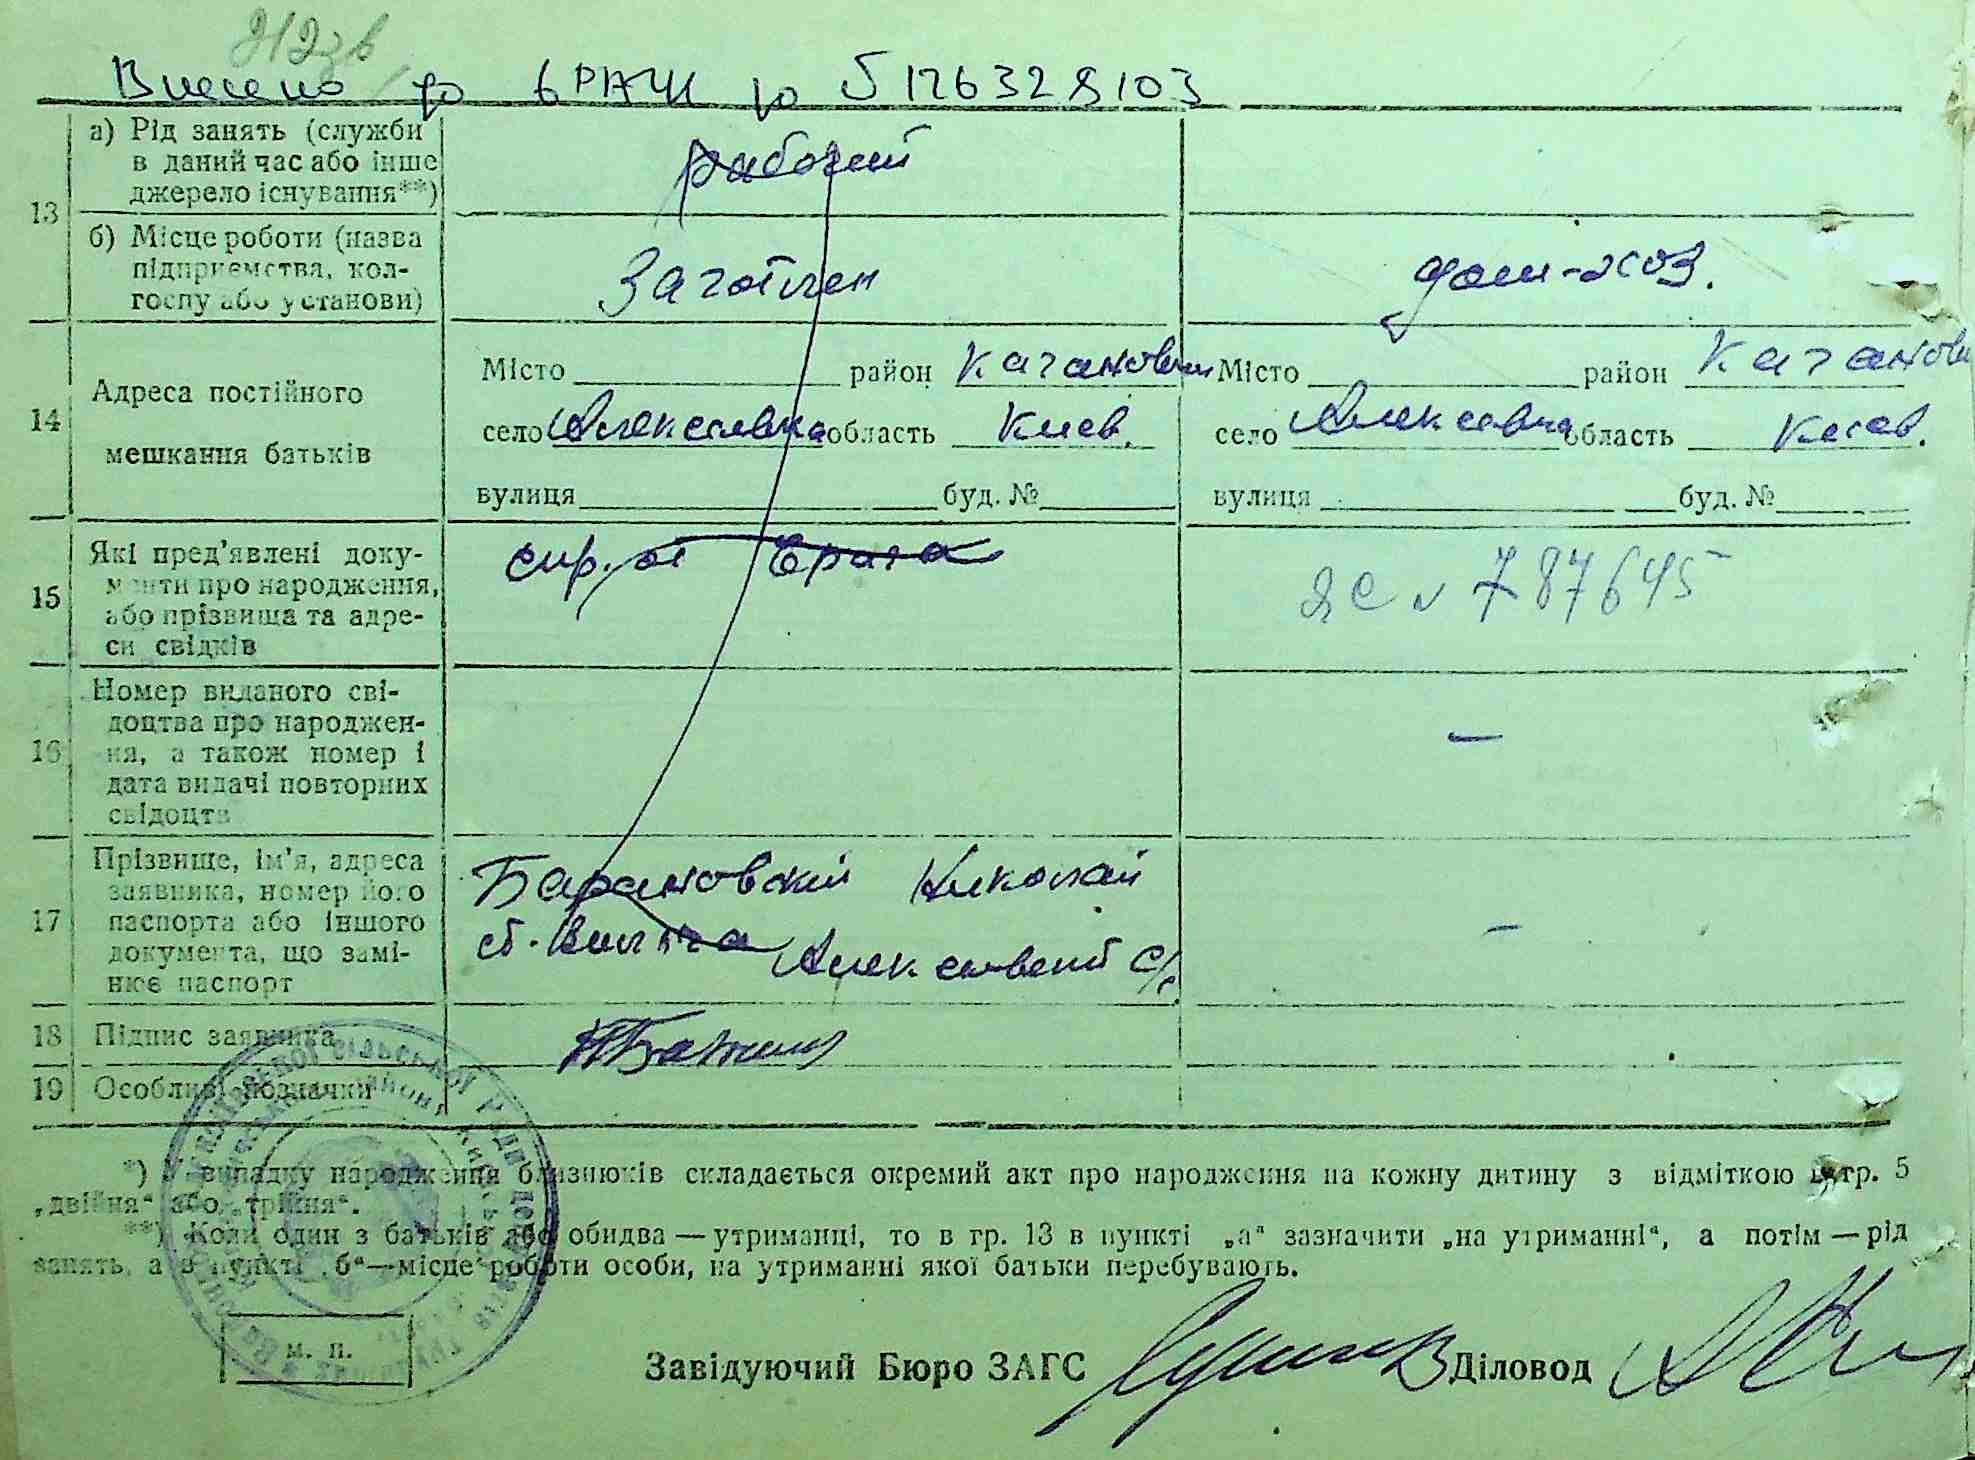 Внесено до ЄРАЧН
13
а) Рід занять (служби
в даний час або інше
джерело існування**)
рабочий
б) Місце роботи (назва
підприємства, кол-
госпу або установи)
Заготлен
дом-хоз.
14
Адреса постійного
мешкання батьків
Місто район Каганович Місто район Каганови
село Алексеевка область Киев. село Алексеевка область Киев.
вулиця буд. № вулиця буд. №
15
Які пред'явлені доку-
менти про народження,
або прізвища та адре-
си свідків
спр. от врача
ЯС № 787645
16
Номер виданого сві-
доцтва про народжен-
ня, а також номер і
дата видачі повторних
свідоцтв
–
17
Прізвище, ім'я, адреса
заявника, номер його
паспорта або іншого
документа, що замі-
нює паспорт
Барановский Николай
ст. Вильча Алексеевский с/с
–
18 Підпис заявника
19 Особливі позначки
*) У випадку народження близнюків складається окремий акт про народження на кожну дитину з відміткою в гр. 5
„двійня“ або „трійня“.
**) Коли один з батьків або обидва — утриманці, то в гр. 13 в пункті „а“ зазначити „на утриманні“, а потім — рід
занять, а в пункті „б“ — місце роботи особи, на утриманні якої батьки перебувають.
м. п.
Завідуючий Бюро ЗАГС Діловод